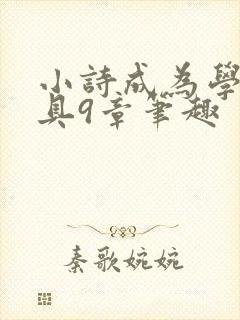 小詩成為學
具9章筆趣
秦歌婉婉